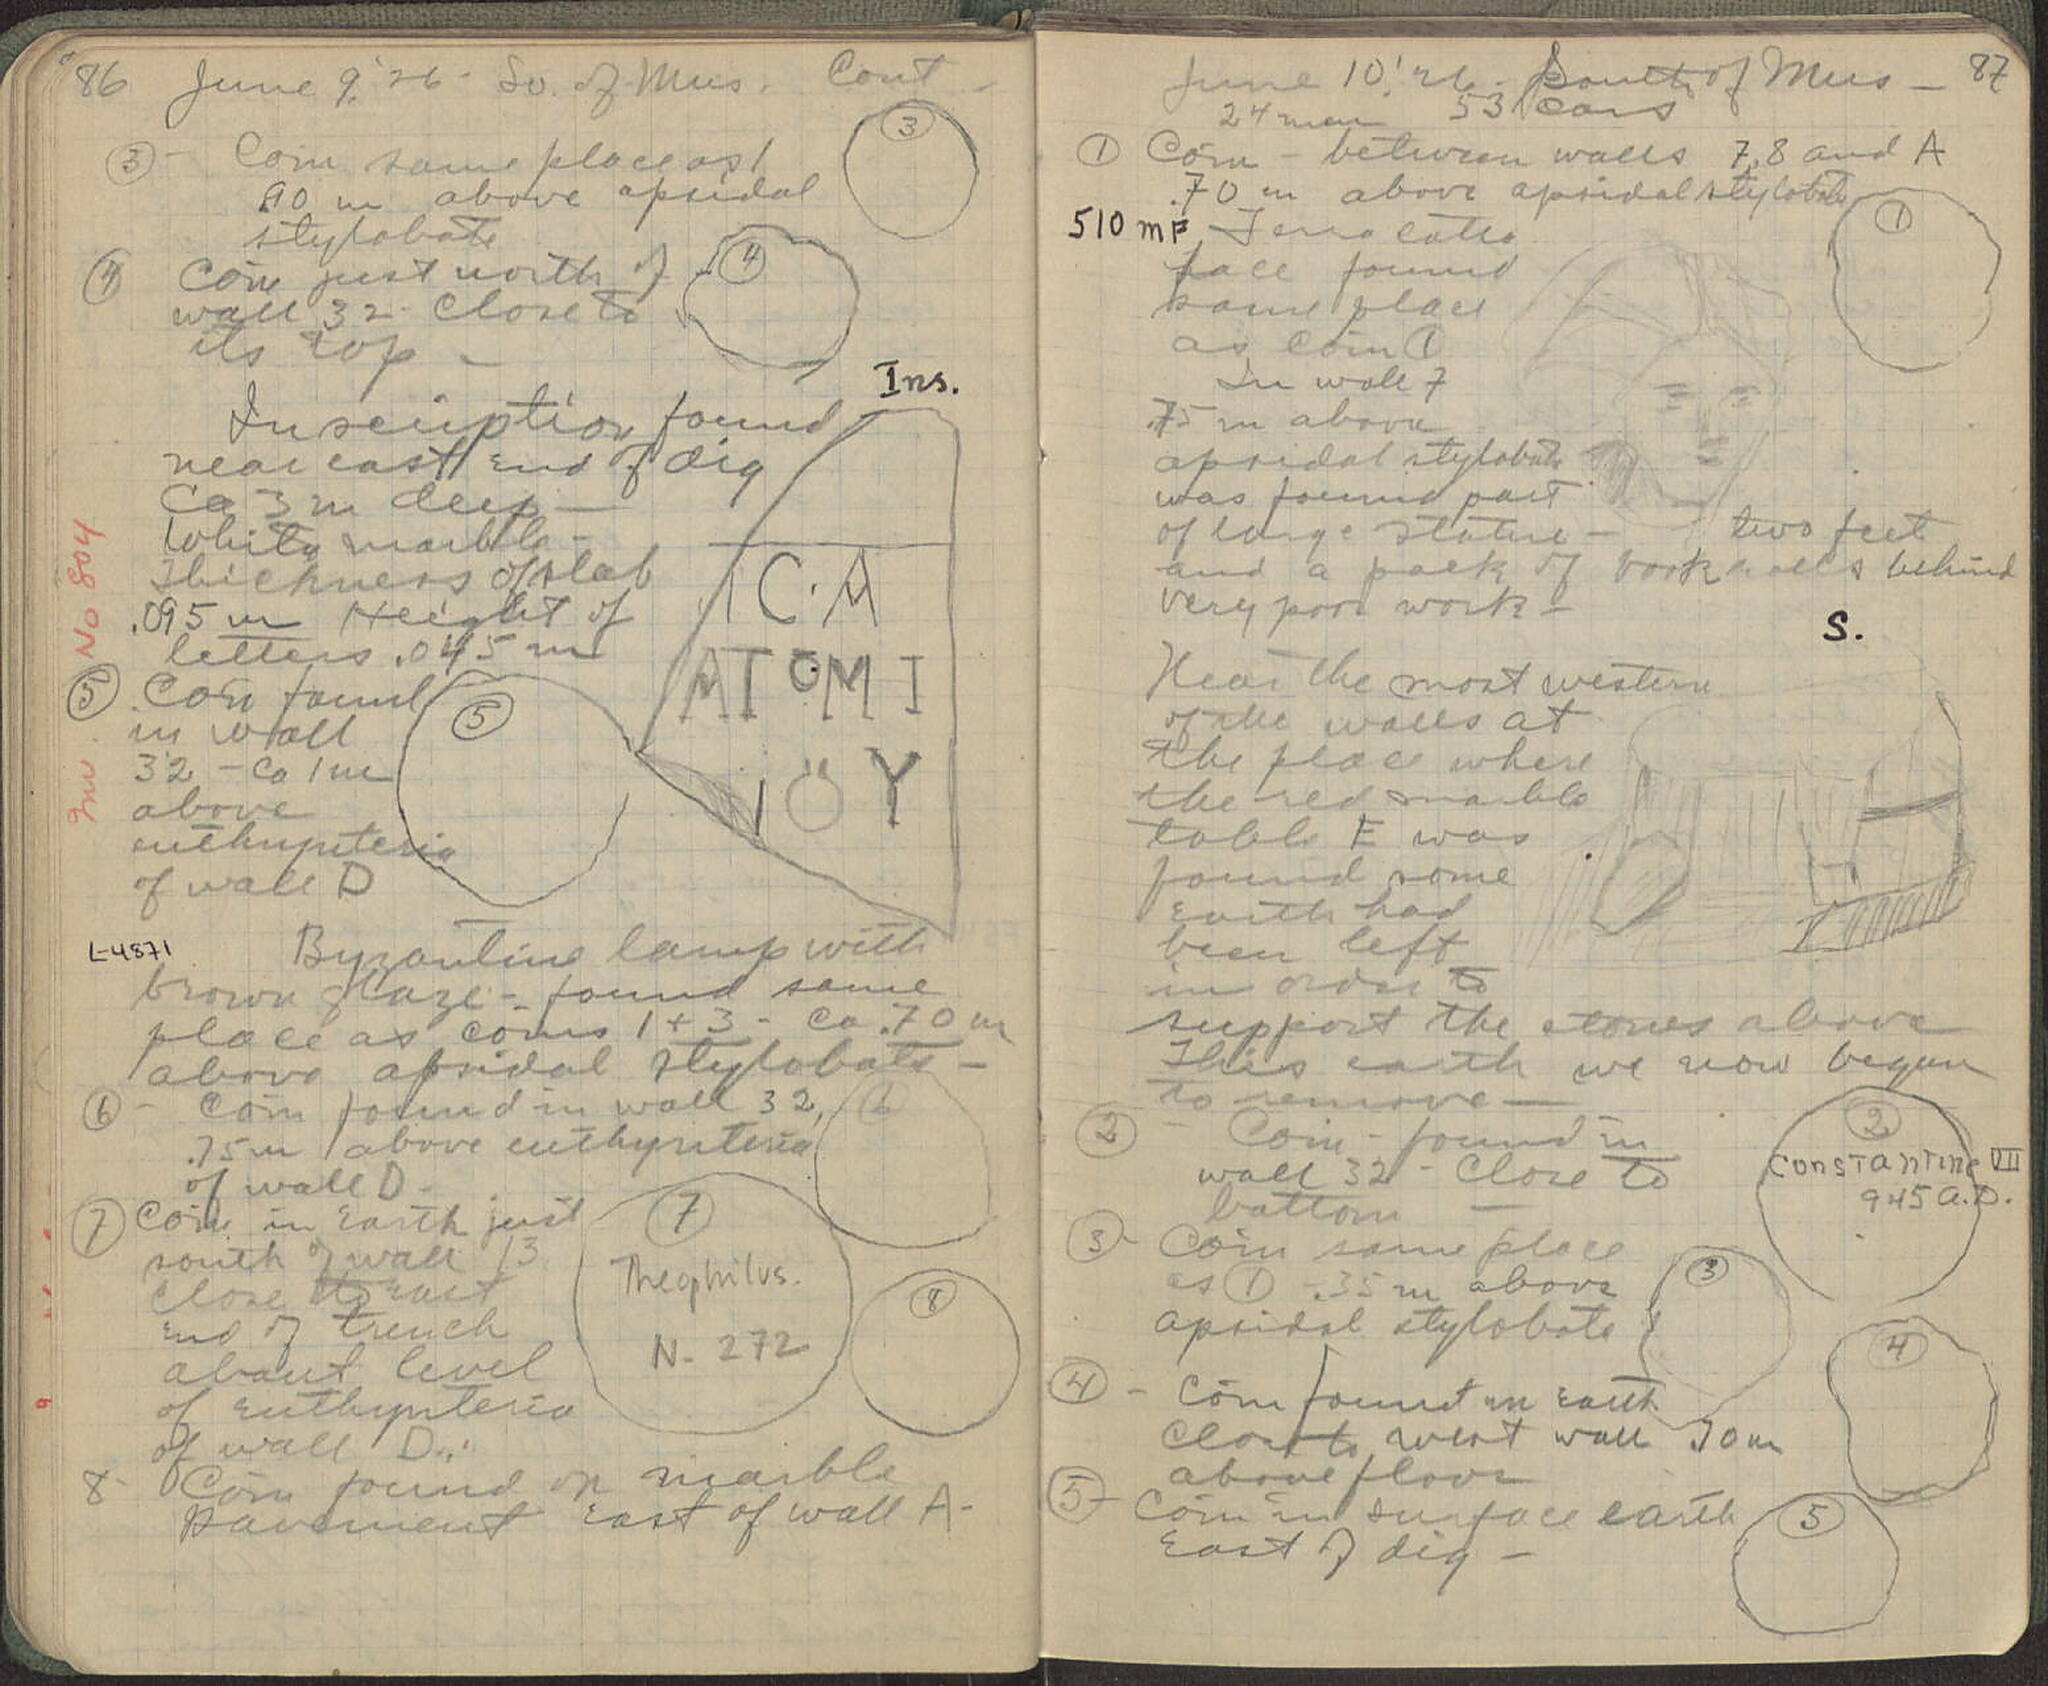 86 June 9. '26 - So. of Mus. Cont -
③ - Coin same place as 1
.90 m above apsidal
stylobate
③
④ Coin just north of
wall 32 - Close to
its top -
④
Ins.
Inscription found
near east end of dig
Ca 3 m deep -
White marble -
Thickness of slab
.095 m Height of
letters .045 m
Inv. No 804
I C · A
A T O M I
I Ö Y
⑤ Coin found
in wall
32 - Ca 1 m
above
euthynteria
of wall D
⑤
L-4871
Byzantine lamp with
brown glaze - found same
place as coins 1 + 3 - Ca .70 m
above apsidal stylobate -
⑥ - Coin found in wall 32,
.75 m above euthynteria
of wall D -
⑥
⑦ Coin in earth just
south of wall 13
close to east
end of trench
about level
of euthynteria
of wall D.
⑦
Theophilus.
N- 272
⑧
8- Coin found on marble
pavement east of wall A-
June 10. '26 - South of Mus - 87
24 men 53 cars
① Coin - between walls 7, 8 and A
.70 m above apsidal stylobate
①
510 MF Terra cotta
face found
same place
as Coin ①
In wall 7
.75 m above
apsidal stylobate
was found part
of large statue - two feet
and a pack of books behind
very poor work -
S.
Near the most western
of the walls at
the place where
the red marble
table E was
found some
earth had
been left
in order to
support the stones above
This earth we now began
to remove -
② - Coin - found in
wall 32 - Close to
bottom -
②
Constantine VII
945 A.D.
③ - Coin same place
as ① - .35 m above
apsidal stylobate
③
④ - Coin found in earth
close to west wall .70 m
above floor
④
⑤ - Coin in surface earth
East of dig -
⑤